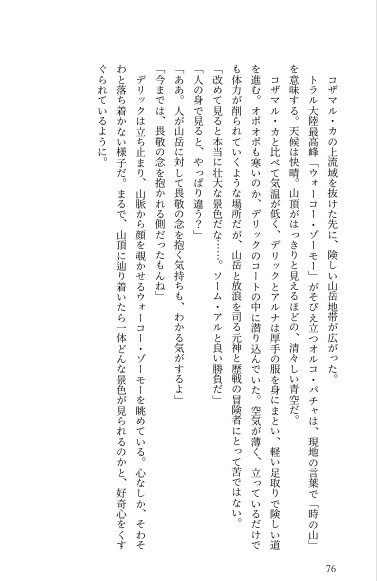 コザマル・カの上流域を抜けた先に、険しい山岳地帯が広がった。
トラル大陸最高峰「ウォーコー・ゾーモー」がそびえ立つオルコ・パチャは、現地の言葉で「時の山」
を意味する。天候は快晴。山頂がはっきりと見えるほどの、清々しい青空だ。
コザマル・カと比べて気温が低く、デリックとアルナは厚手の服を身にまとい、軽い足取りで険しい道
を進む。オポオポも寒いのか、デリックのコートの中に潜り込んでいた。空気が薄く、立っているだけで
も体力が削られていくような場所だが、山岳と放浪を司る元神と歴戦の冒険者にとって苦ではない。
「改めて見ると本当に壮大な景色だな……。ソーム・アルと良い勝負だ」
「人の身で見ると、やっぱり違う？」
「ああ。人が山岳に対して畏敬の念を抱く気持ちも、わかる気がするよ」
「今までは、畏敬の念を抱かれる側だったもんね」
デリックは立ち止まり、山脈から顔を覗かせるウォーコー・ゾーモーを眺めている。心なしか、そわそ
わと落ち着かない様子だ。まるで、山頂に辿り着いたら一体どんな景色が見られるのかと、好奇心をくす
ぐられているように。
76